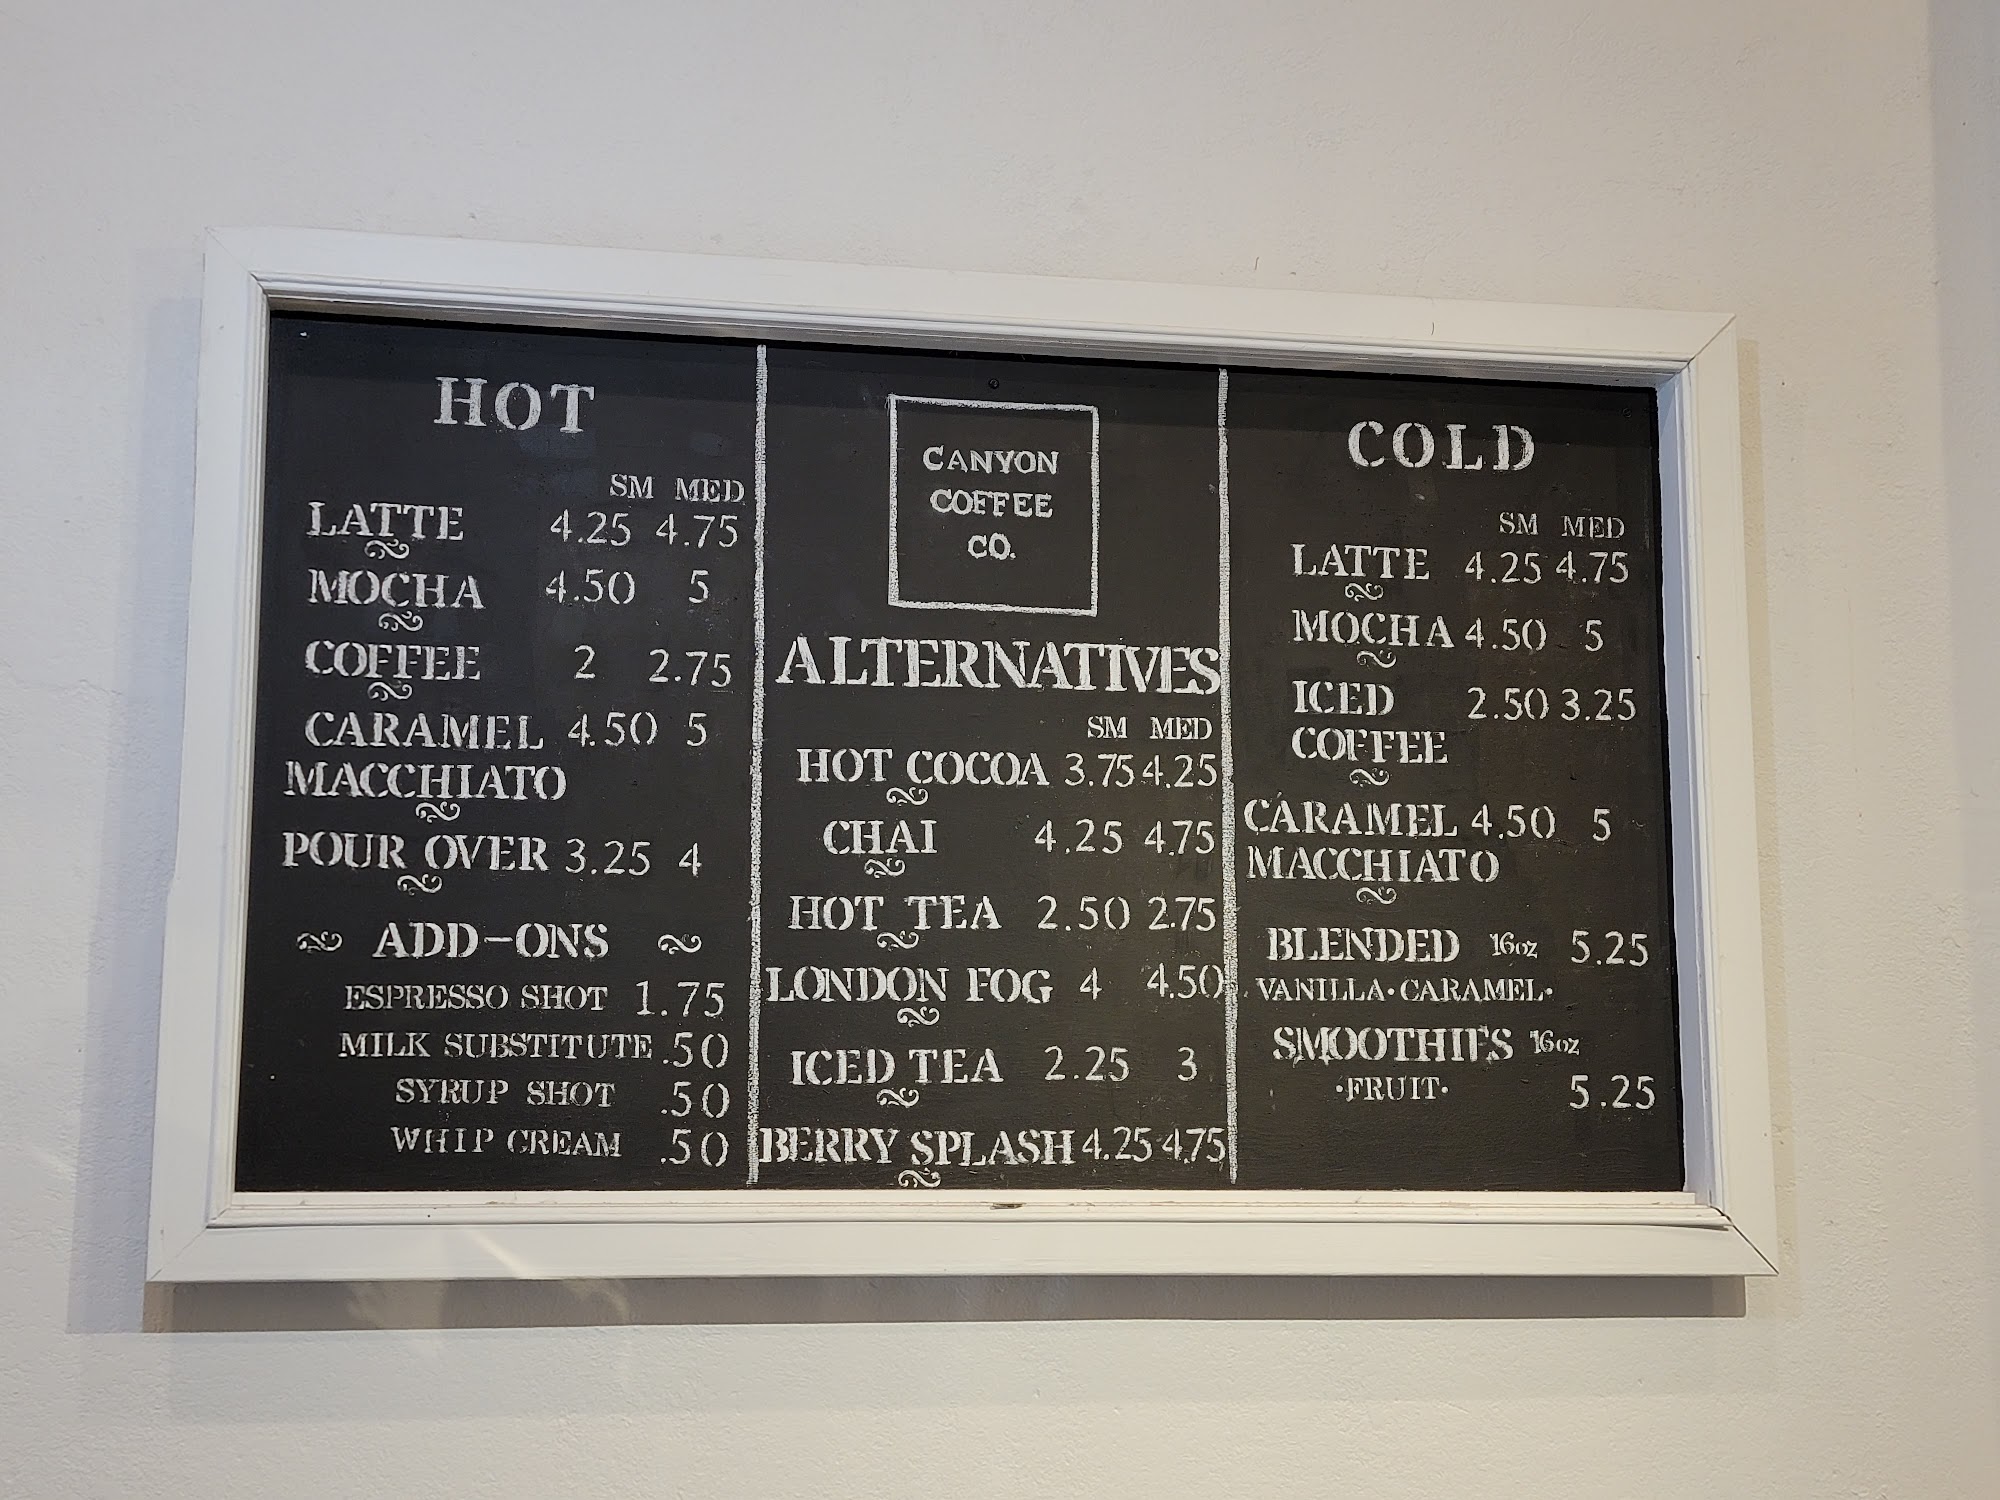 HOT
SM MED
LATTE 4.25 4.75
MOCHA 4.50 5
COFFEE 2 2.75
CARAMEL 4.50 5
MACCHIATO
POUR OVER 3.25 4
ADD-ONS
ESPRESSO SHOT 1.75
MILK SUBSTITUTE .50
SYRUP SHOT .50
WHIP CREAM .50
CANYON
COFFEE
CO.
ALTERNATIVES
SM MED
HOT COCOA 3.75 4.25
CHAI 4.25 4.75
HOT TEA 2.50 2.75
LONDON FOG 4 4.50
ICED TEA 2.25 3
BERRY SPLASH 4.25 4.75
COLD
SM MED
LATTE 4.25 4.75
MOCHA 4.50 5
ICED 2.50 3.25
COFFEE
CARAMEL 4.50 5
MACCHIATO
BLENDED 16oz 5.25
VANILLA·CARAMEL·
SMOOTHIES 16oz
·FRUIT· 5.25